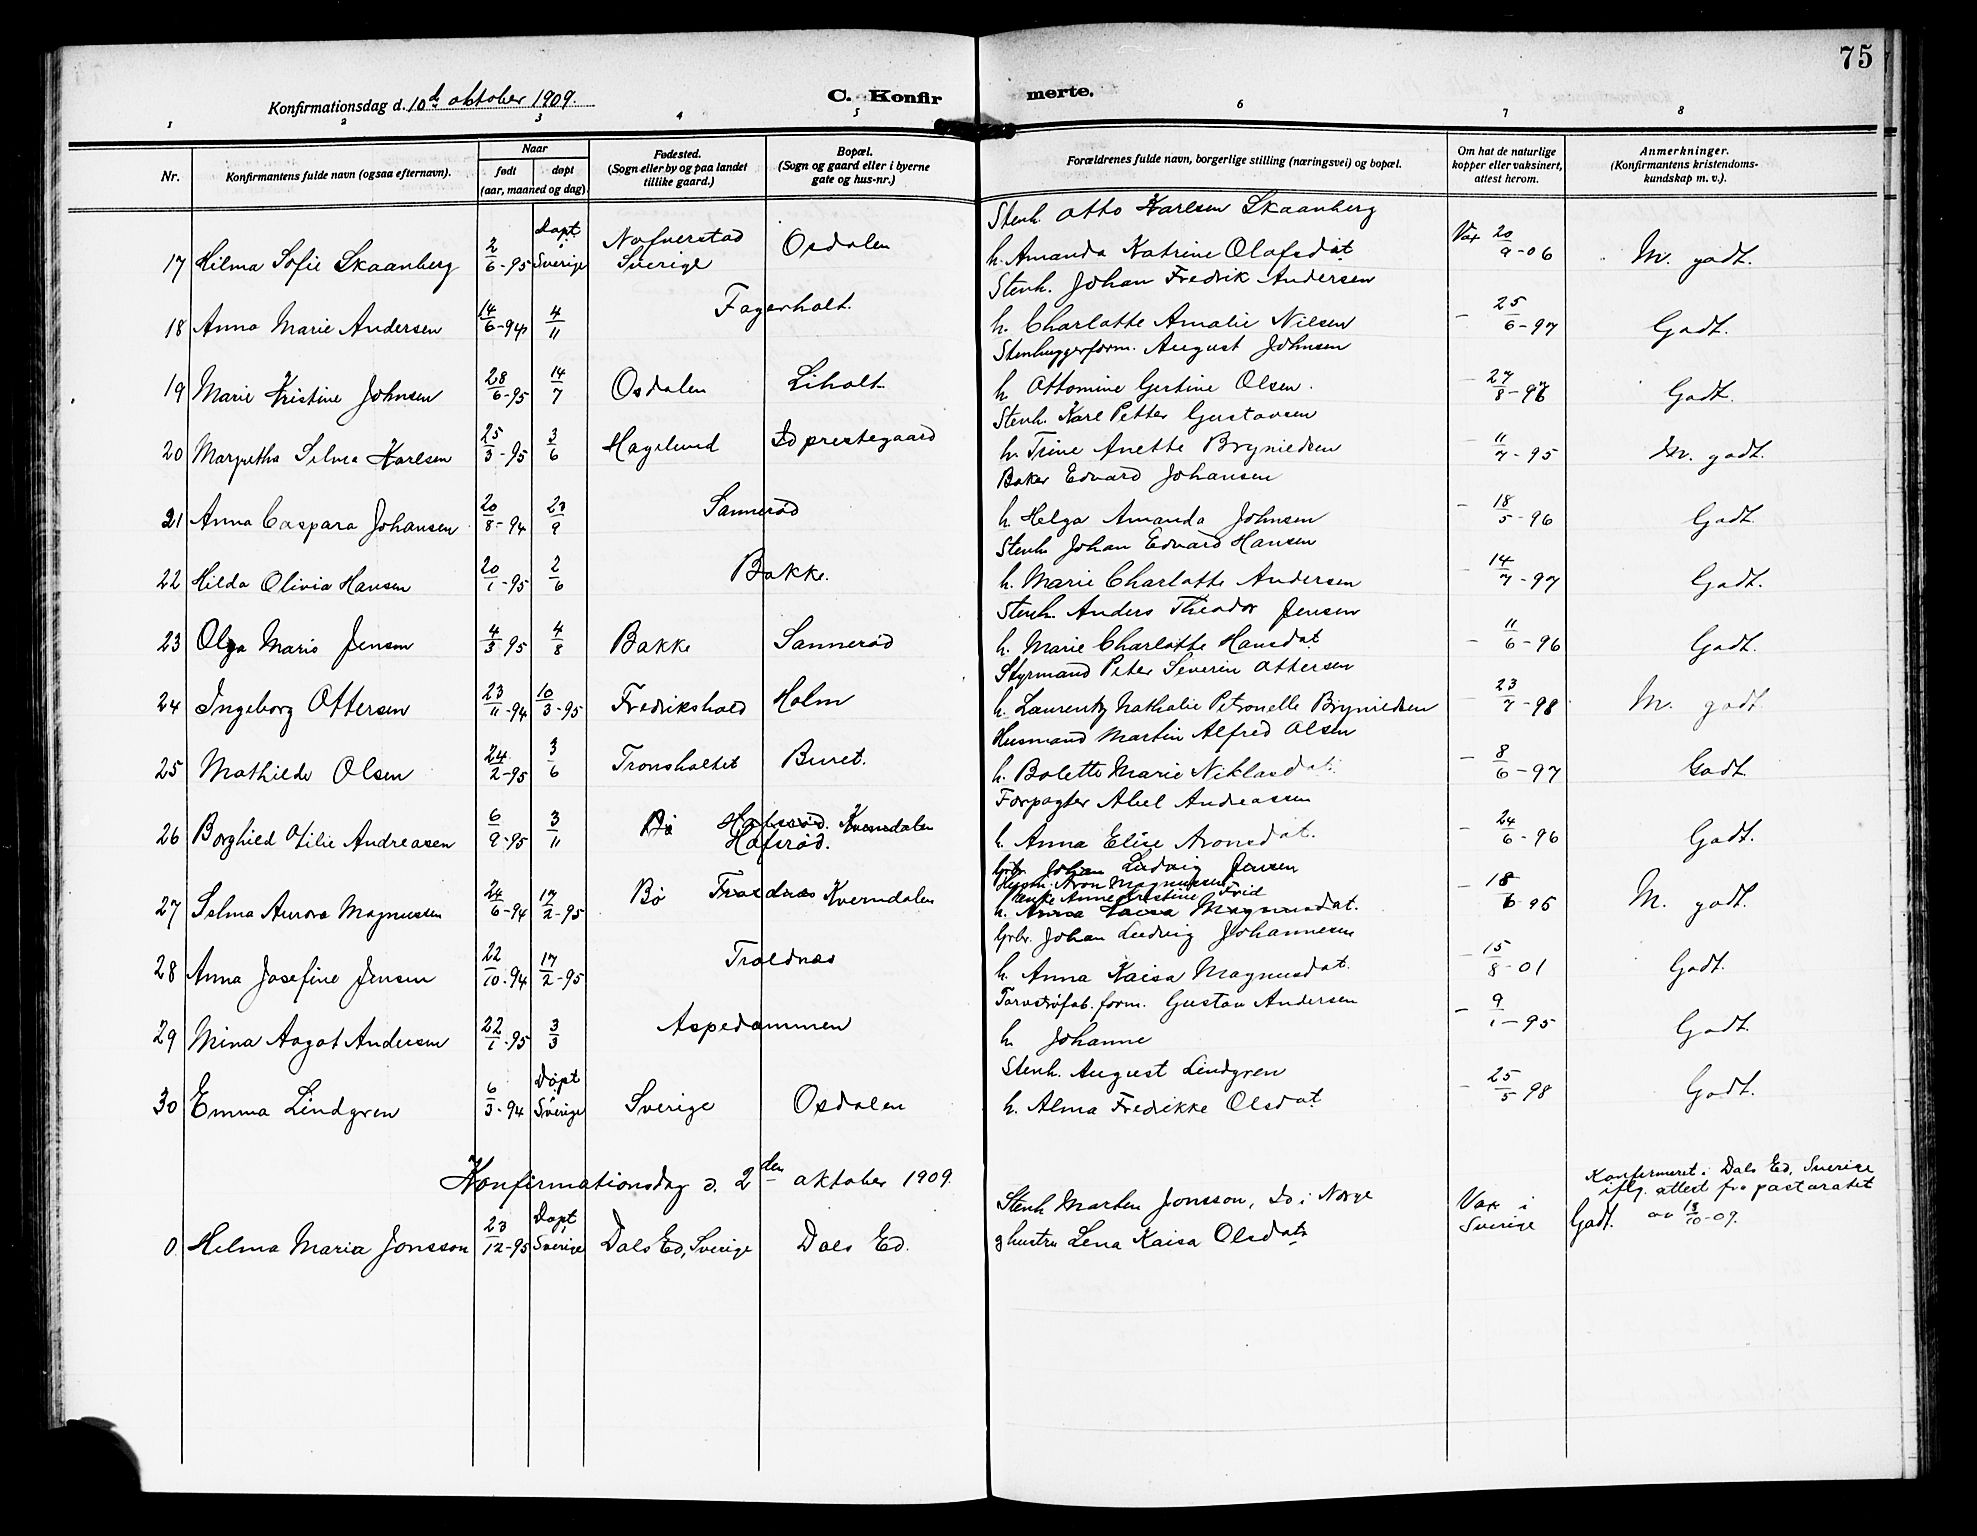 75
Konfirmationsdag d. 10de oktober 1909.
C. Konfirmerte.
1 2 3 4 5 6 7 8
Nr.
Konfirmantens fulde navn (ogsaa efternavn).
Naar
født døpt
(aar, maaned og dag).
Fødested.
(Sogn eller by og paa landet
tillike gaard.)
Bopæl.
(Sogn og gaard eller i byerne
gate og hus-nr.)
Forældrenes fulde navn, borgerlige stilling (næringsvei) og bopæl.
Om hat de naturlige
kopper eller vaksinert,
attest herom.
Anmerkninger.
(Konfirmantens kristendoms-
kundskap m. v.).
17 Hilma Sofie Skaanberg 2/6-95 Døpt i Sverige Nafverstad Sverige Osdalen
Stenh. Otto Karlsen Skaanberg
h. Amanda Katrine Olafsdat Vax 20/9-06 M. godt.
18 Anna Marie Andersen 14/6-94 4/11 Fagerholt.
Stenh. Johan Fredrik Andersen
h. Charlotte Amalie Nilsen - 25/6-97 Godt.
19 Marie Kristine Johnsen 28/6-95 14/7 Osdalen Liholt
Stenhuggerform. August Johnsen
h. Ottomine Gertine Olsen. - 27/8-96 Godt.
20 Margretha Selma Karlsen 25/3-95 3/6 Hagelund Id prestegaard
Stenh. Karl Petter Gustavsen
h. Trine Anette Brynildsen - 11/7-95 M. godt.
21 Anna Caspara Johansen 20/8-94 23/9 Sannerød
Baker Edvard Johansen
h. Helga Amanda Johnsen - 18/5-96 Godt
22 Hilda Olivia Hansen 20/1-95 2/6 Bakke.
Stenh. Johan Edvard Hansen
h. Marie Charlotte Andersen - 14/7-97 Godt.
23 Olga Marie Jensen 4/3-95 4/8 Bakke Sannerød
Stenh. Anders Theodor Jensen
h. Marie Charlotte Hansdat - 11/6-96 Godt.
24 Ingeborg Ottersen 23/11-94 10/3-95 Fredrikshald Holm
Styrmand Peter Severin Ottersen
h. Laurentz Nathalie Petronelle Brynildsen - 23/7-98 M. godt
25 Mathilde Olsen 24/2-95 3/6 Tronsholtet Buret.
Husmand Martin Alfred Olsen
h. Bolette Marie Niklasdat. - 8/6-97 Godt.
26 Borghild Otilie Andreasen 6/9-95 3/11 Bø Hafsrød. Kverndalen
Hafsrød.
Forpagter Abel Andreassen
h. Anna Elise Aronsdat. - 24/6-96 Godt.
27 Selma Aurora Magnussen 24/6-94 17/2-95 Bø Troldnæs Kverndalen
Grbr. Johan Ludvig Jensen
Aron Magnussen
Anne Kristine
h. Anna Kaisa Magnusdat. - 18/6 95 M. godt.
28 Anna Josefine Jensen 22/10-94 17/2-95 Troldnæs
Grbr. Johan Ludvig Johannesen
h. Anna Kaisa Magnusdat. - 15/8-01 Godt.
29 Mina Aagot Andersen 22/1-95 3/3 Aspedammen
Torvstrøfab. form. Gustav Andersen
h. Johanne - 9/1-95 Godt.
30 Emma Lindgren 6/3-94 Døpt i Sverige Sverige Osdalen
Stenh. August Lindgren
h. Alma Fredrikke Olsdat - 25/5 98 Godt.
Konfirmationsdag d. 2den oktober 1909.
0 Hilma Maria Jonsson 23/12-95 Døpt i Sverige Dals Ed, Sverige Dals Ed.
Stenh Marten Jonsson, Id i Norge
g hustru Lena Kaisa Olsdat Vax i Sverige Godt.
Konfirmeret i Dals Ed, Sverige
iflg. attest fra pastoratet
av 13/10-09.